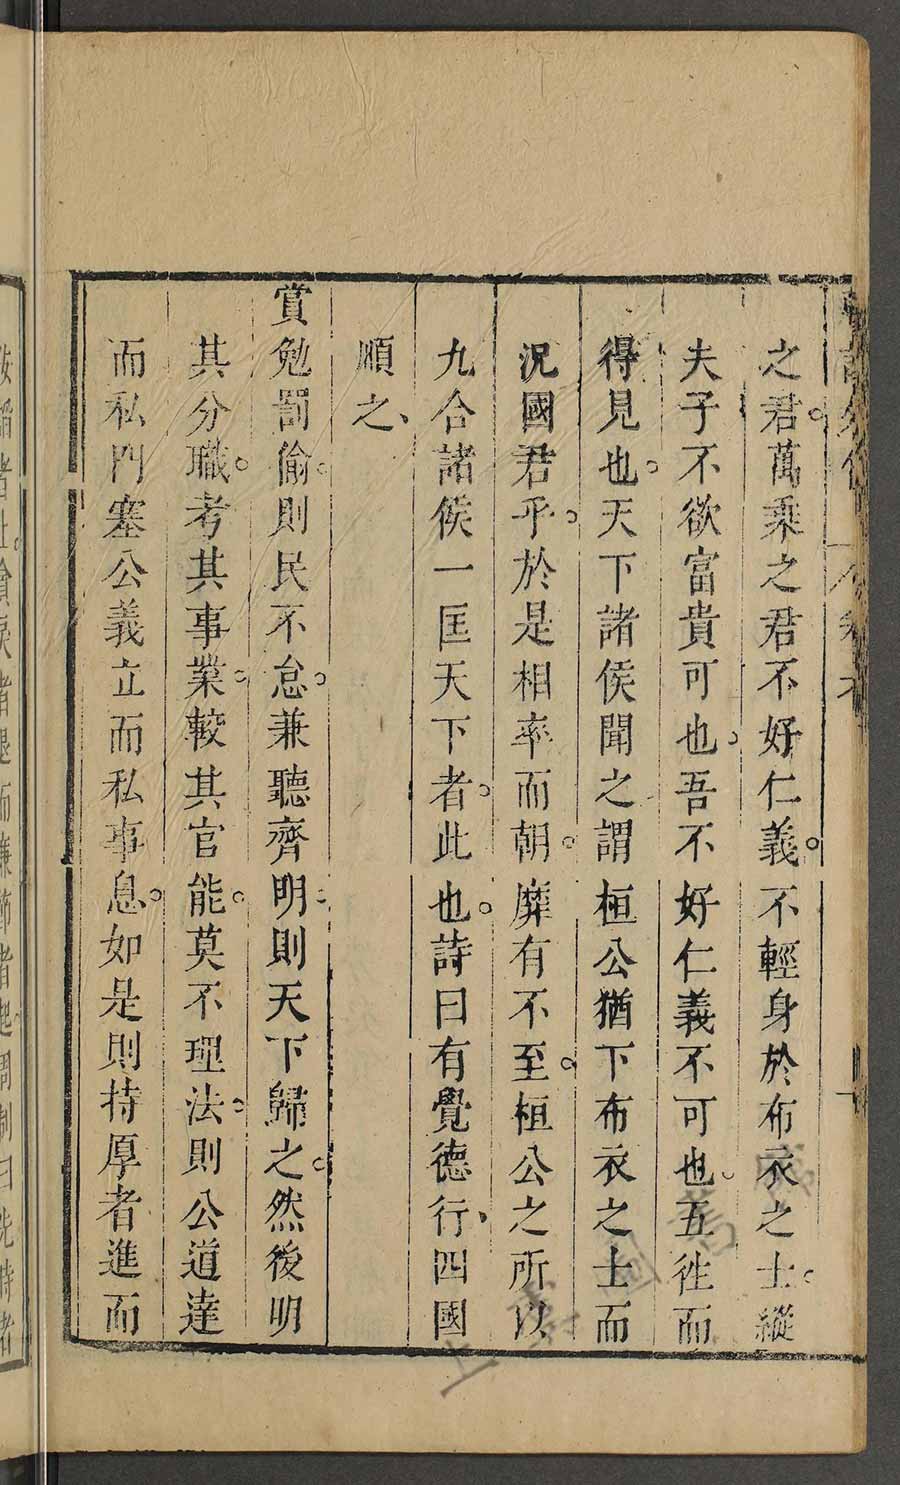 之君萬乘之君不好仁義不輕身於布衣之士縱
夫子不欲富貴可也吾不好仁義不可也五徃而
得見也天下諸侯聞之謂桓公猶下布衣之士而
況國君乎於是相率而朝靡有不至桓公之所以
九合諸侯一匡天下者此也詩曰有覺德行四國
順之
賞勉罰偷則民不怠兼聽齊明則天下歸之然後明
其分職考其事業較其官能莫不理法則公道達
而私門塞公義立而私事息如是則持厚者進而